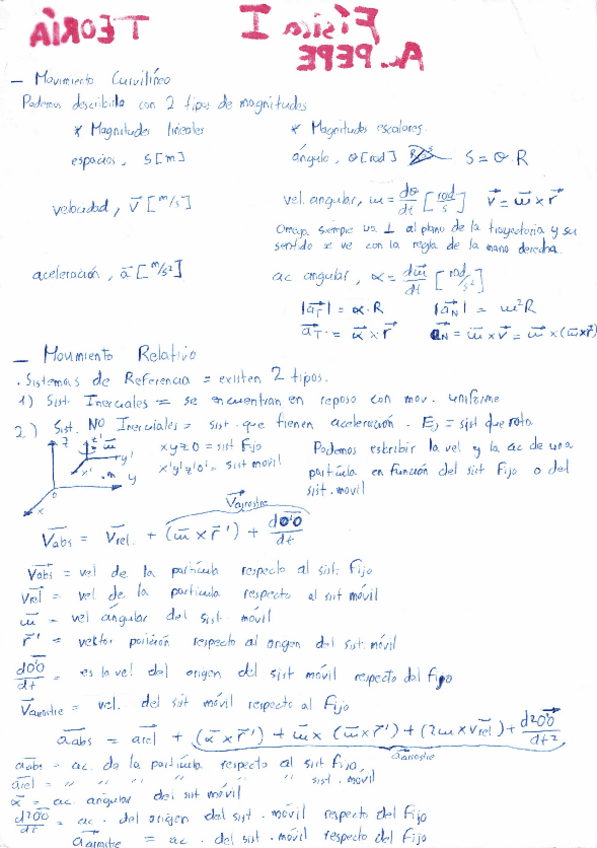 TEORÍA Física I
Ac. PEPE
— Movimiento Curvilíneo
Podemos describirlo con 2 tipos de magnitudes
* Magnitudes lineales * Magnitudes escalares.
espacios, S[m] ángulo, θ[rad] S = θ·R
velocidad, v⃗ [m/s] vel. angular, ω = dθ/dt [rad/s] v⃗ = ω⃗ x r⃗
Omega siempre va ⊥ al plano de la trayectoria y su
sentido se ve con la regla de la mano derecha.
aceleración, a⃗ [m/s²] ac angular, α = dω⃗/dt [rad/s²]
|a⃗T| = α·R |a⃗N| = ω²R
a⃗T = α⃗ x r⃗ a⃗N = ω⃗ x v⃗ = ω⃗ x (ω⃗ x r⃗)
— Movimiento Relativo
. Sistemas de Referencia = existen 2 tipos.
1) Sist Inerciales = se encuentran en reposo con mov. uniforme
2) Sist. NO Inerciales = sist. que tienen aceleración. Ej = sist que rota
z z' ω⃗ y' x' m y o x
xyz0 = sist Fijo
x'y'z'0' = sist móvil
Podemos escribir la vel y la ac de una
partícula en función del sist Fijo o del
sist. movil
V⃗arrastre
V⃗abs = V⃗rel. + (ω⃗ x r⃗') + dO'O/dt
V⃗abs = vel de la partícula respecto al sist. Fijo
V⃗rel = vel de la partícula respecto al sist móvil
ω⃗ = vel angular del sist. móvil
r⃗' = vektor posición respecto al origen del sist. móvil
dO'O/dt = es la vel del origen del sist móvil respecto del Fijo
V⃗arrastre = vel. del sist móvil respecto al Fijo
a⃗abs = a⃗rel + (α⃗ x r⃗') + ω⃗ x (ω⃗ x r⃗') + (2ω x v⃗rel) + d²OO'/dt²
a⃗arrastre
a⃗abs = ac. de la partícula respecto al sist Fijo,
a⃗rel = " " " " " " sist. móvil
α⃗ = ac. angular del sist móvil
d²OO'/dt = ac. del origen del sist. móvil respecto del Fijo
a⃗arrastre = ac. del sist. móvil respecto del Fijo